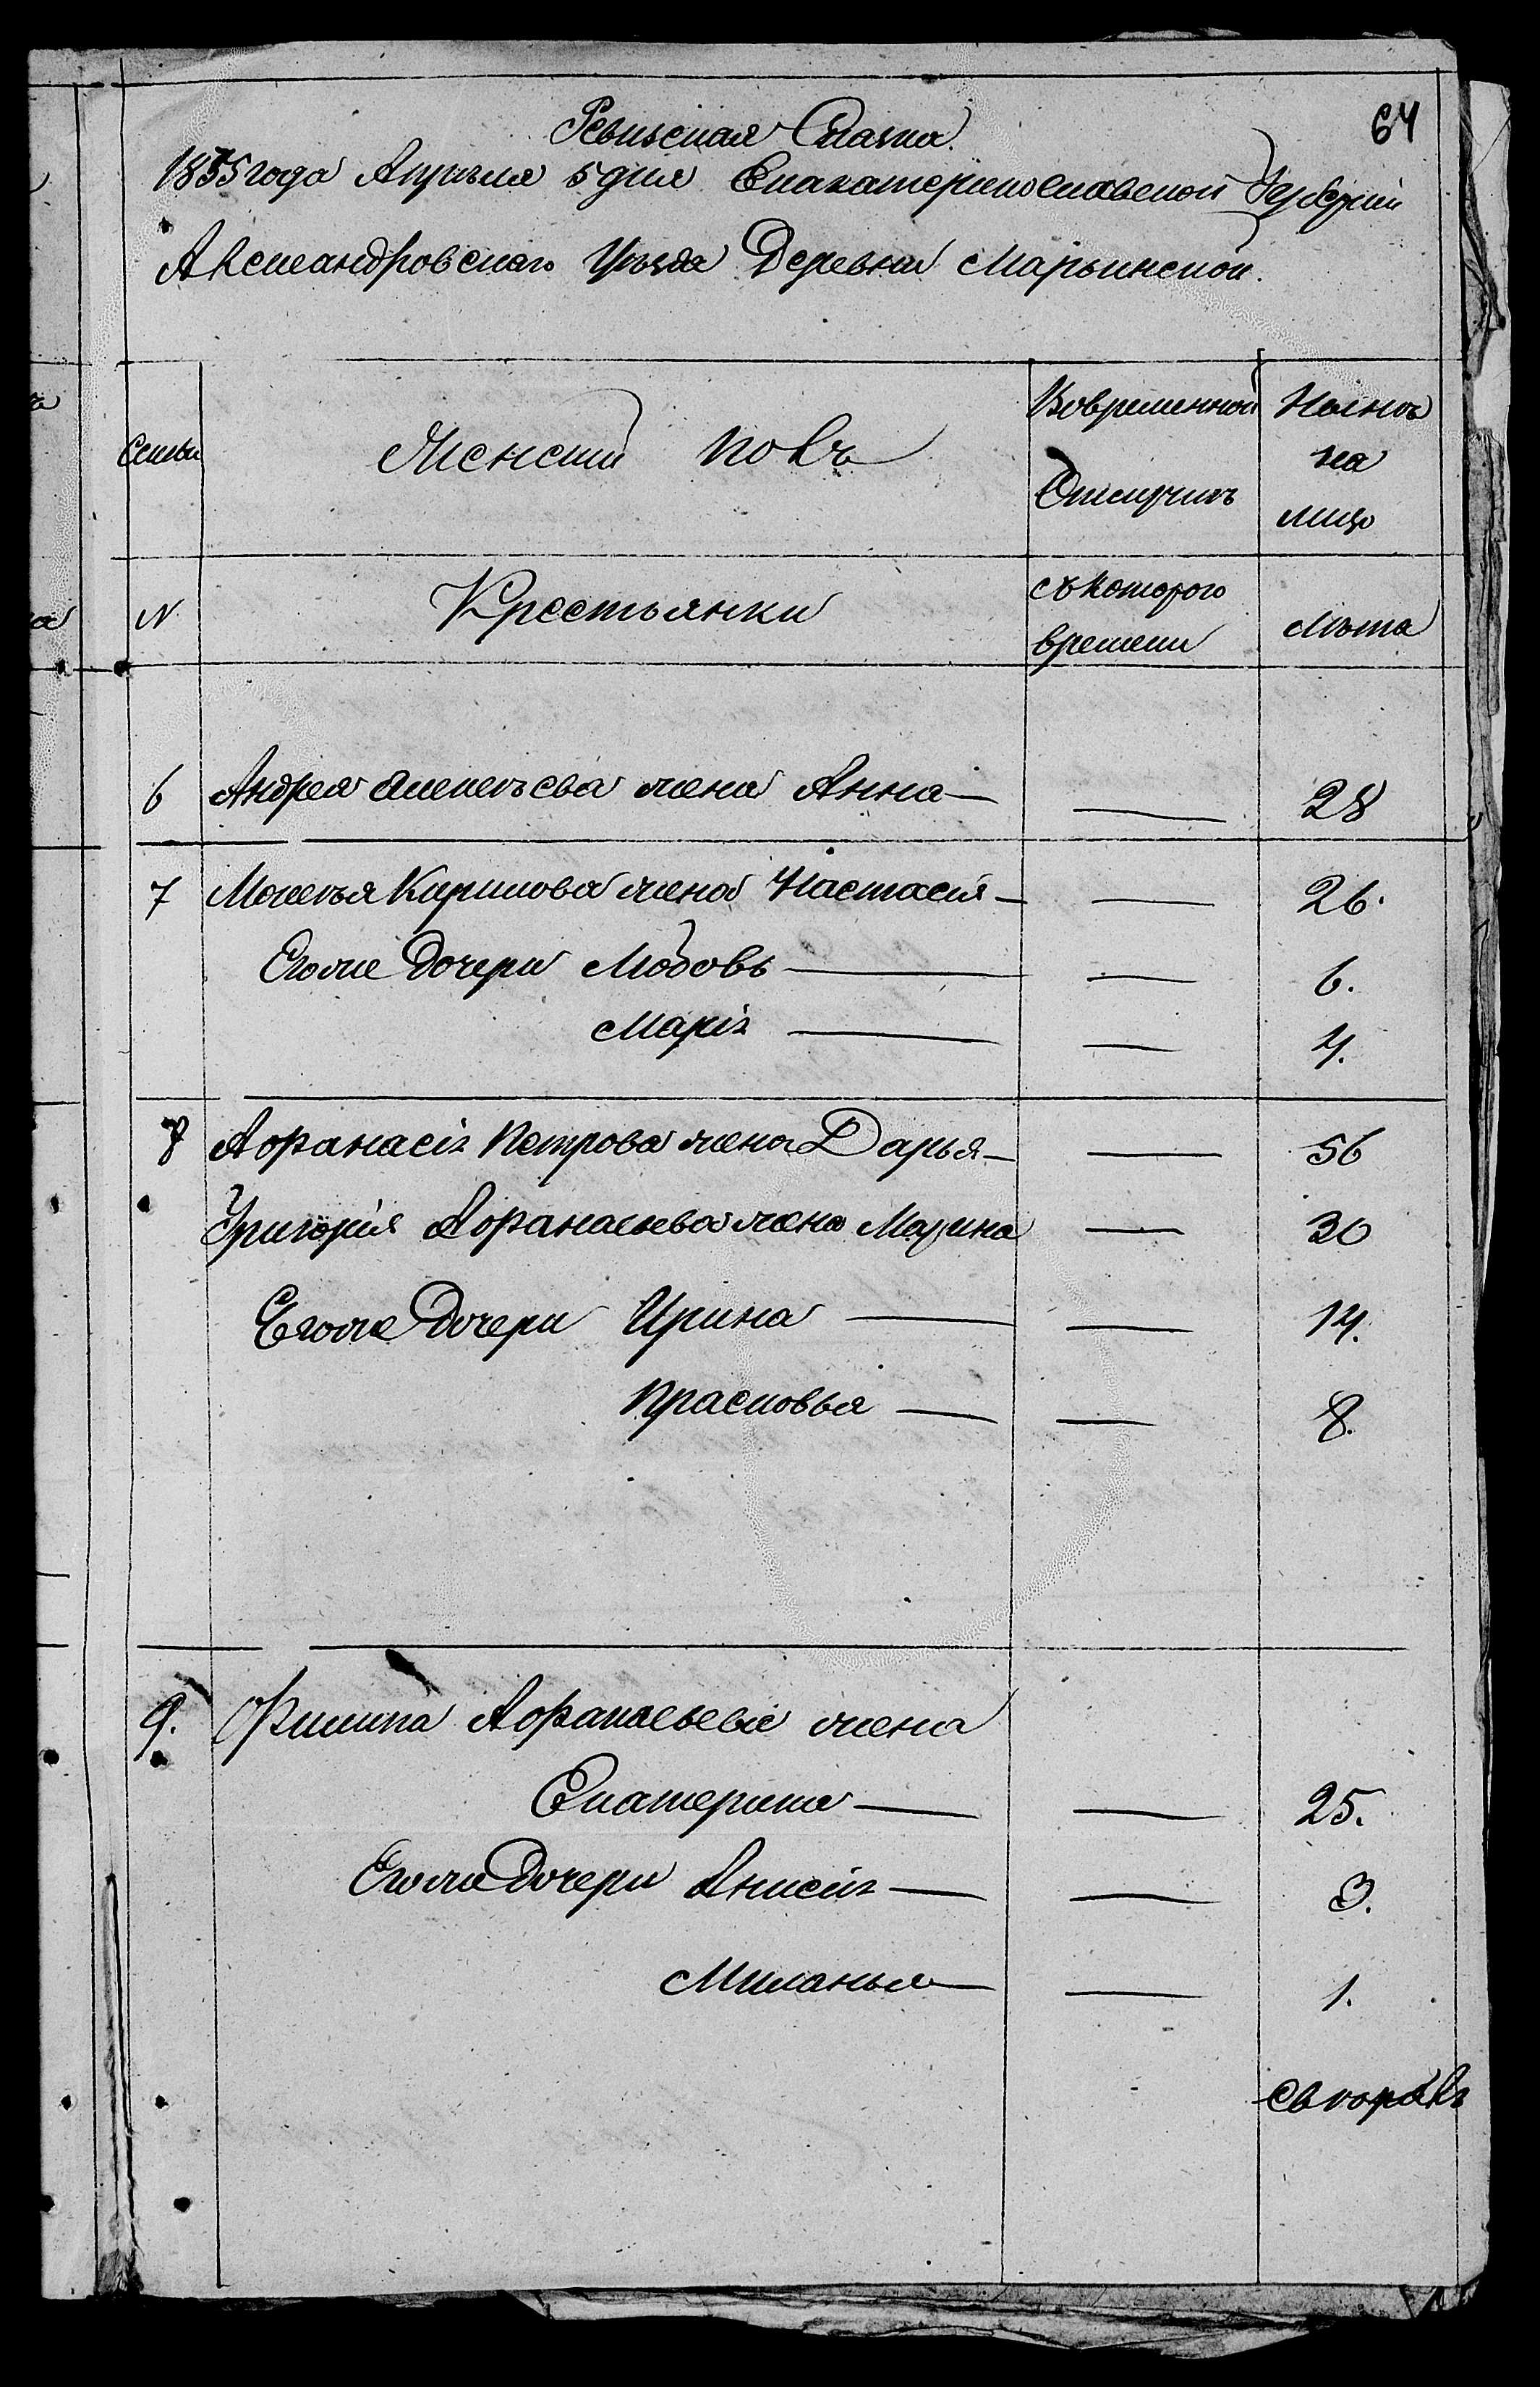 64
Ревиская Сказка
1835 года Апрѣля 5 дня Екатеринославской Губерніи
Александровскаго Уѣзда Деревни Марьинской.
Семьи
Женскій полъ
Вовременной Отлучкѣ
Нынѣ на лицо
N
Крестьянки
съ котораго времени
Лѣта
6 Андрея Алексѣева жена Анна — — 28
7 Моисея Кирилова жена Настасія — — 26.
Егоже Дочери Любовь — — 6.
Марія — — 4.
8 Афанасія Петрова жена Дарья — — 56
Григорія Афанасьева жена Марина — 30
Егоже Дочери Ирина — — 14.
Прасковья — — 8.
9. Филипа Афанасьева жена
Екатерина — — 25.
Егоже Дочери Анисія — — 3.
Миланья — — 1.